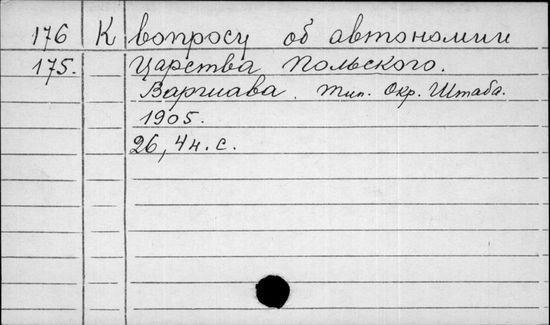 176 К вопросу об автономии
175. Царства Польского.
Варшава. Тип. Окр. Штаба.
1905.
26, 4н. с.